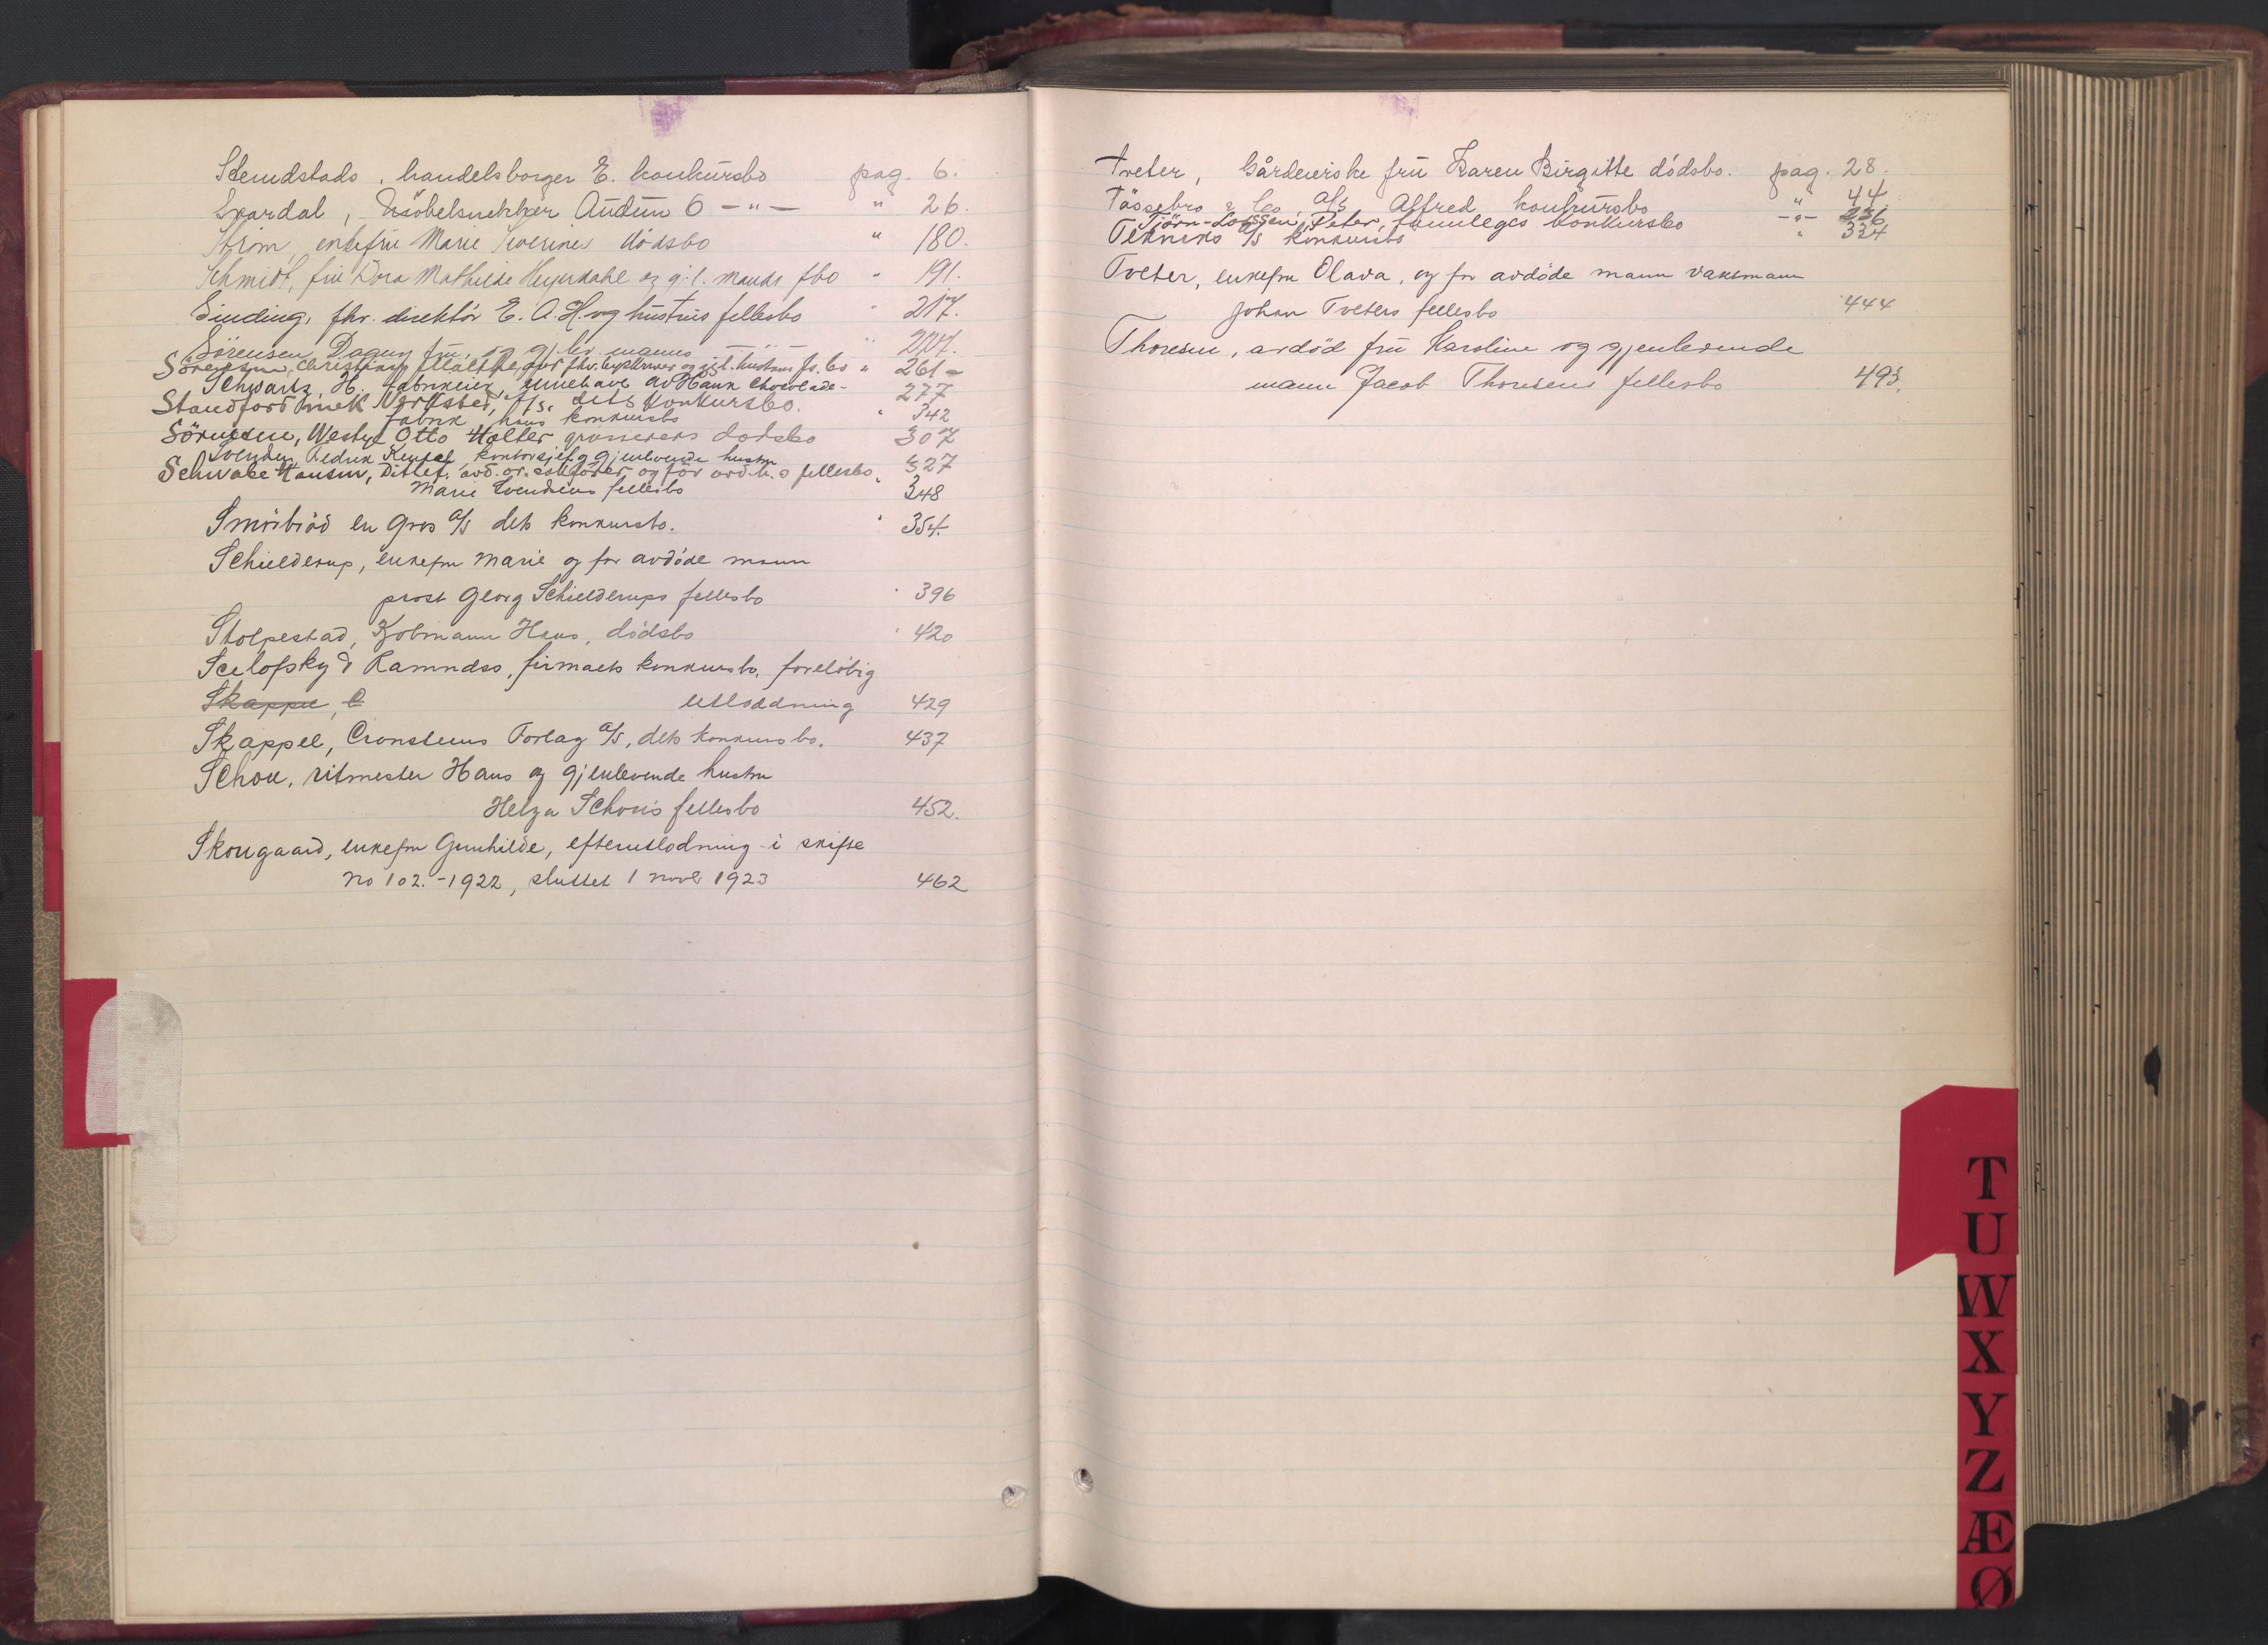 Stenstads, handelsborger E. konkursbo pag. 6.
Svardal, Møbelsnekker Audun O — " — " 26.
Strøm, enkefru Marie Severine dødsbo " 180.
Schmidt, fru Dora Mathilde Heyerdahl og gj. l. mands fbo " 191.
Sinding, fhv. direktør E. A. H. og hustrus fellesbo " 217.
Sørensen Dagny fru, og gj. lev. manns — " — " 227.
Sørensen, Christian og gjl. hustrus fs. bo " 261 -
Schwartz H. fabrikeier, innehaver av Hauk Chocolade-
Standfort mek Verksted, A/S. dets konkursbo. 277
fabrik hans konkursbo " 342
Sørensen, Westye Otto Holter grosserers dødsbo 307
Svendsen, Fedrik kontorsjef og gjenlevende hustru
Schwabe Hansen, Ditlef, avd. or. sakfører og før avd. h.s fellesbo. 327
Marie Svendsens fellesbo 348
Smørbrød en Gros a/s dets konkursbo. " 354.
Schielderup, enkefru Marie og før avdøde mann
prost Georg Schielderups fellesbo " 396
Stolpestad, Kjøbmann Hans, dødsbo " 420
& Ramndes, firmaets konkursbo, foreløbig
Skappe, C utloddning 429
Skappel, Cronstens Forlag a/s, dets konkursbo. 437
Schou, ritmester Hans og gjenlevende hustru
Helga Schou's fellesbo 452.
Skougaard, enkefru Gunhilde, efterutlodning i skifte
No 102.-1922, sluttet 1 novbr 1923 462
Tveter, Gårdeierske fru Karen Birgitte dødsbo. pag. 28.
Tøssebro & Co a/s Alfred konkursbo " 44.
Tjörn-Larssen, Peter, konkursbo — " — 236
Teknikos a/s konkursbo " 334
Tveter, enkefru Olava, og før avdøde mann vaktmann
Johan Tveters fellesbo 444
Thoresen, avdød fru Karoline og gjenlevende
mann Jacob Thoresens fellesbo 493.
T
U
W
X
Y
Z
Æ
Ø